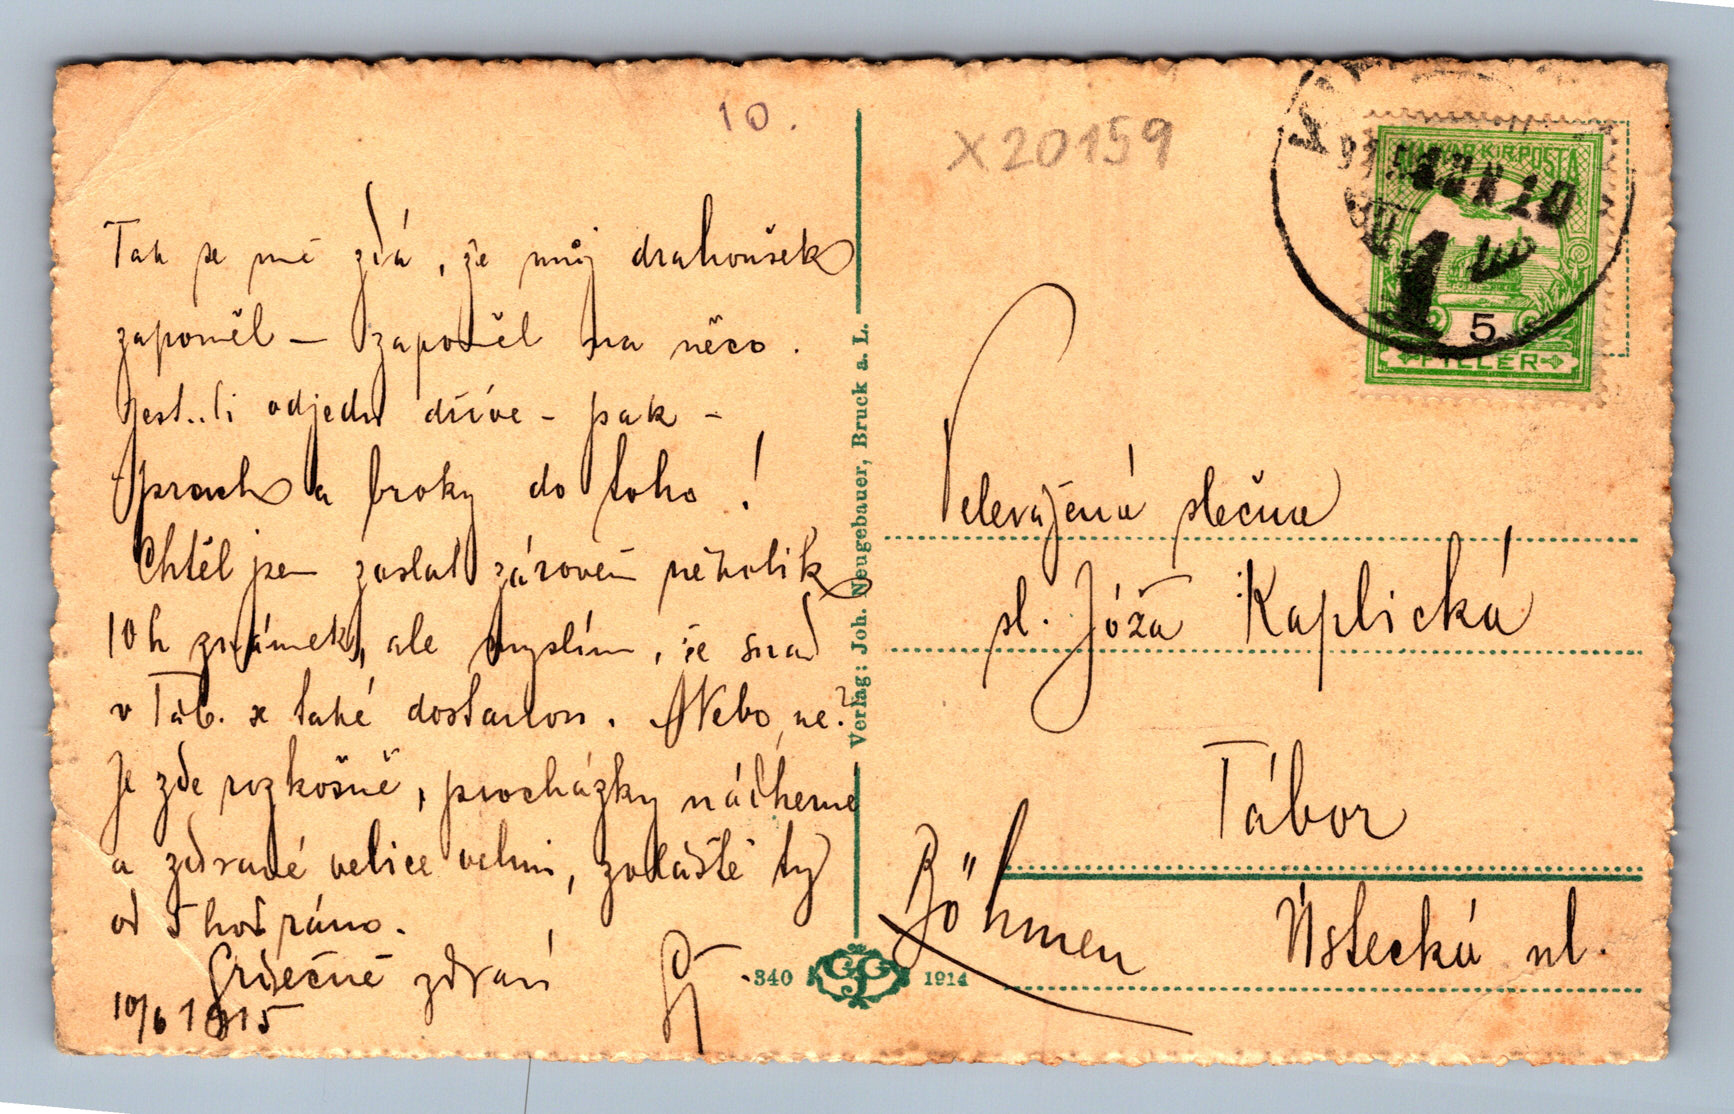 10.
X20159
MAGYAR KIR. POSTA
5
FILLER
Tak se mě zdá, že můj drahoušek
zapoměl – zapoměl na něco.
Jest..li odjedu dříve – pak –
prach a broky do toho!
Chtěl jsem zaslat zároveň několik
10 h známek, ale myslím, že snad
v Táb. se také dostanou. Nebo ne?
Je zde rozkošně, procházky nádherné
a zdravé velice velmi, zvláště ty
od 5 hod ráno.
Srdečně zdraví
10/6 1915
Verlag: Joh. Neugebauer, Bruck a. L.
340
1914
Velevážená slečna
sl. Jóža Kaplická
Tábor
Böhmen
Ústecká ul.